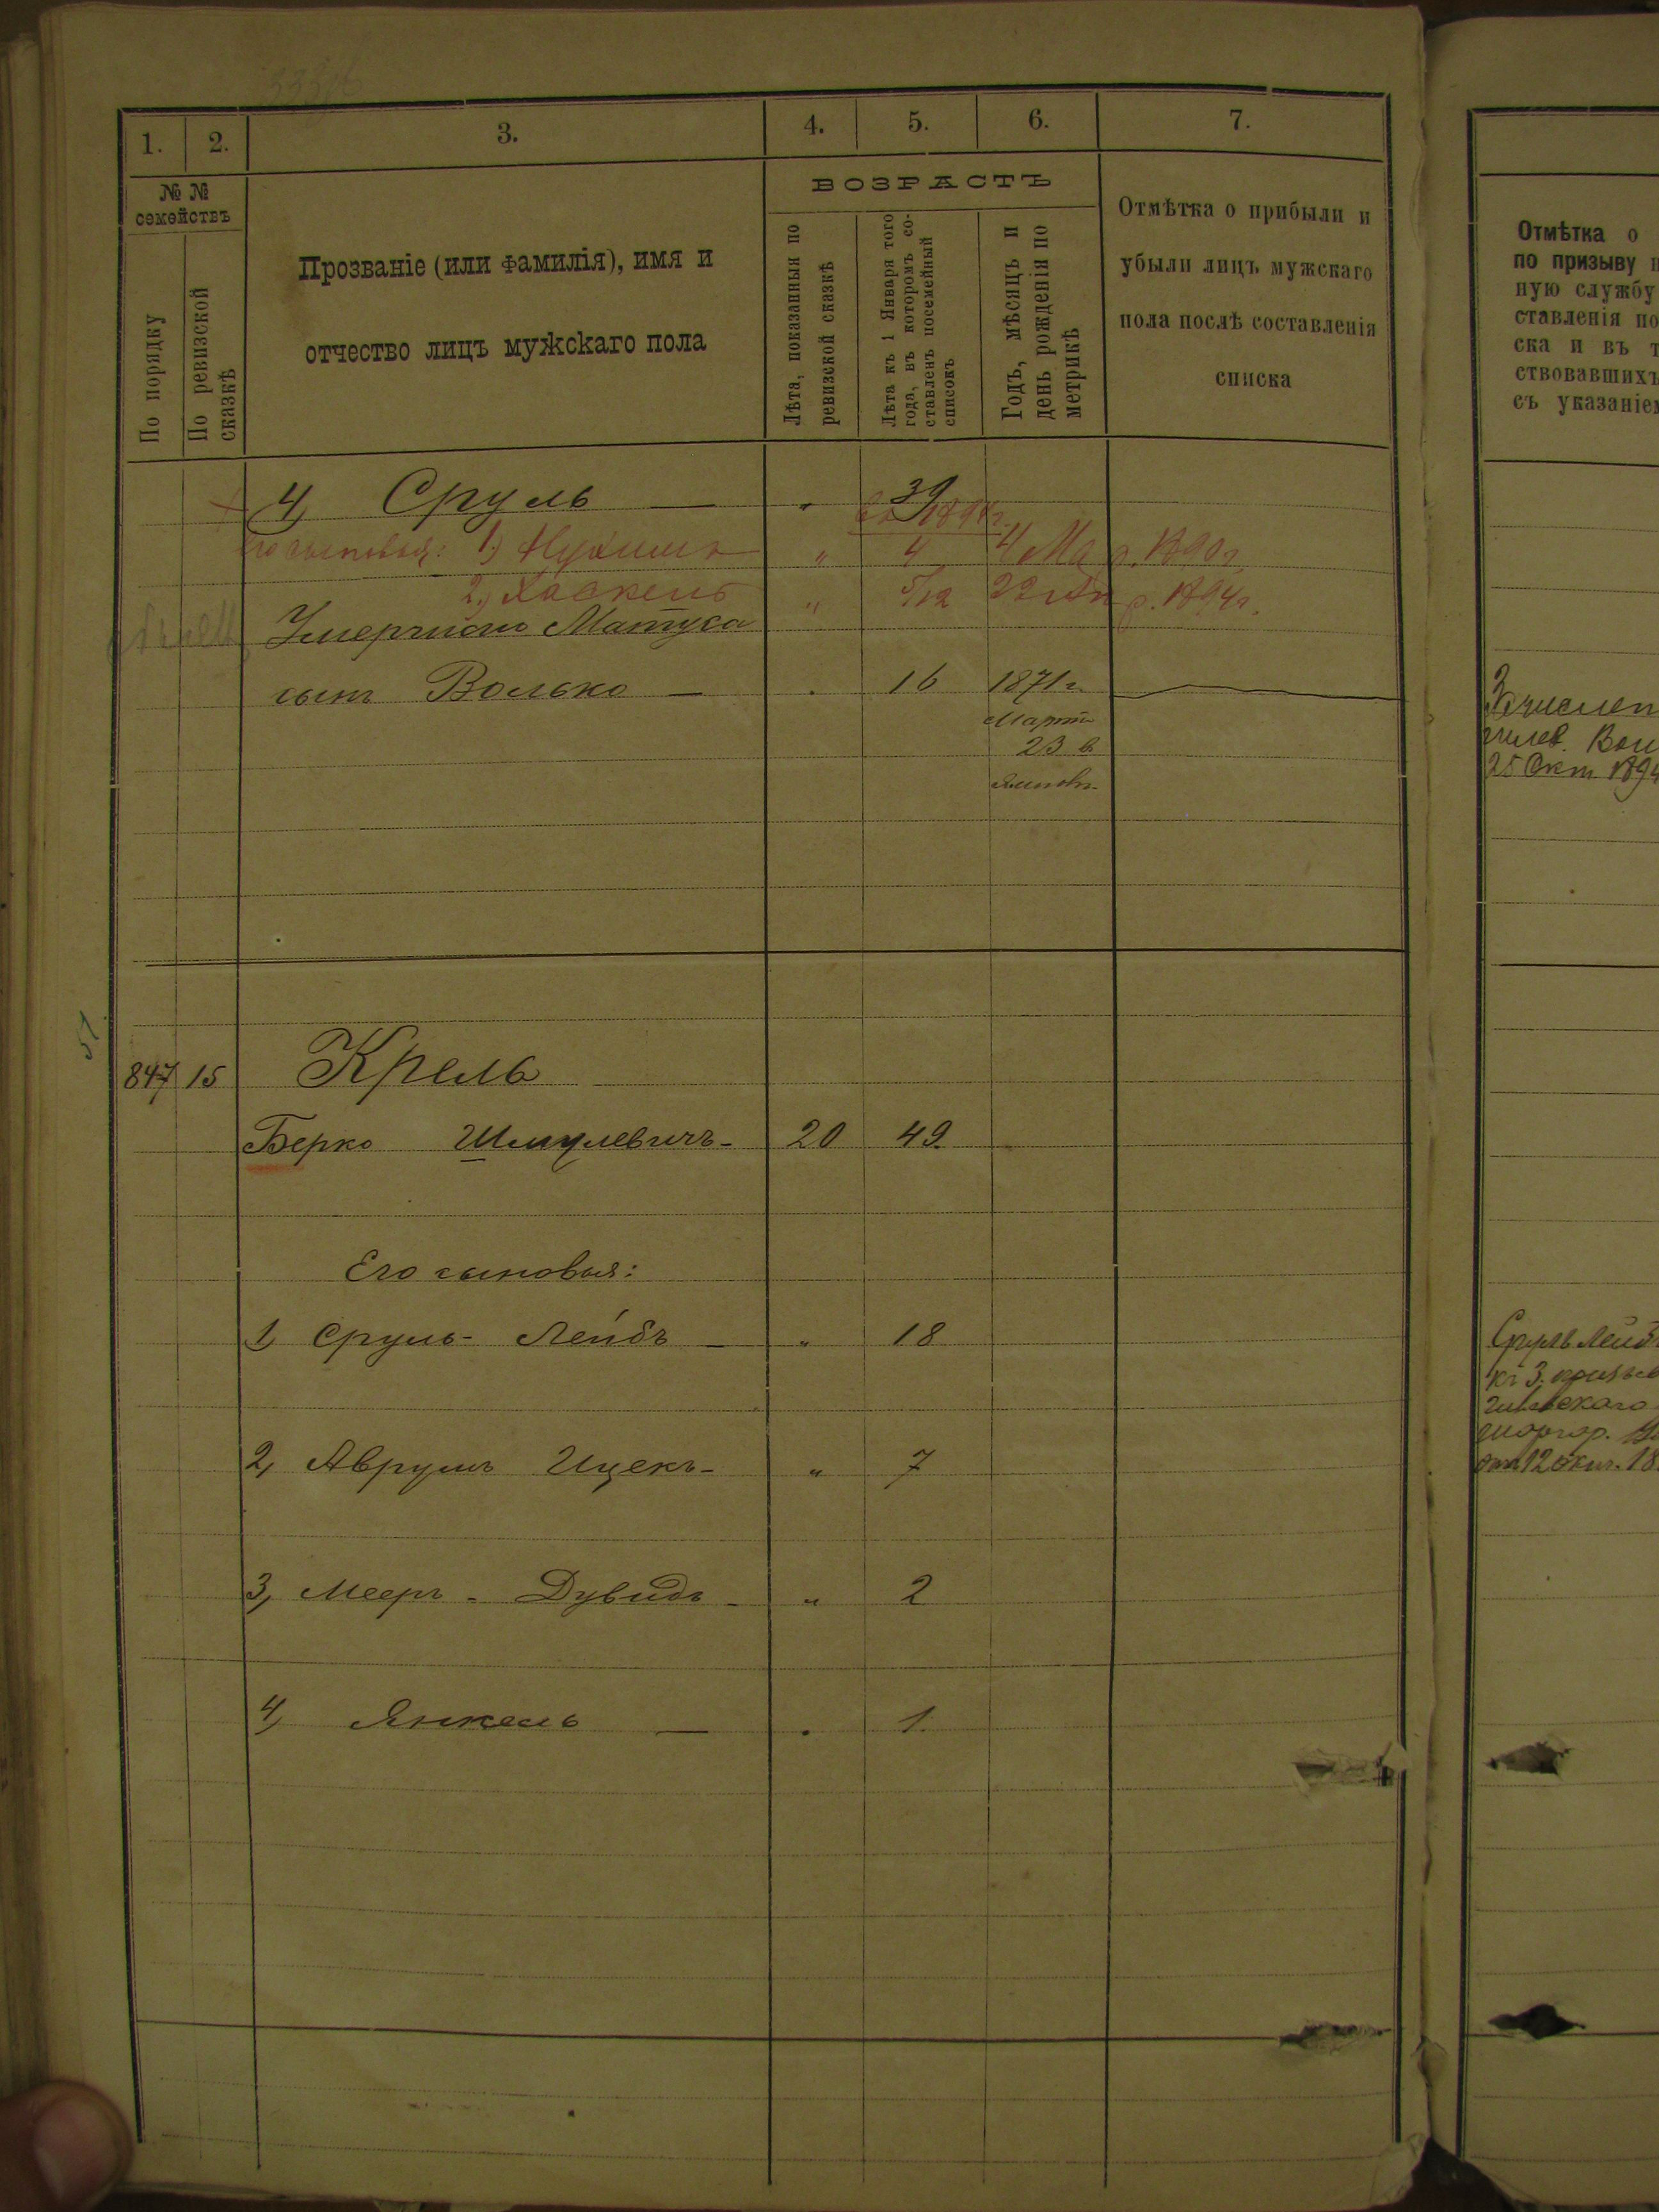 1. 2. 3. 4. 5. 6. 7.
№ №
семействъ
По порядку
По ревизской
сказкѣ
Прозваніе (или фамилія), имя и
отчество лицъ мужскаго пола
ВОЗРАСТЪ
Лѣта, показанныя по
ревизской сказкѣ
Лѣта къ 1 Января того
года, въ которомъ со-
ставленъ посемейный
списокъ
Годъ, мѣсяцъ и
день рожденія по
метрикѣ
Отмѣтка о прибыли и
убыли лицъ мужскаго
пола послѣ составленія
списка
4, Сруль — " 39
1894г.
его сыновья: 1) Нухимъ " 4 4 Мар. 1890г.
2) Хаскель " 5/12 22 р. 1894г.
УмершагоМатуса
сынъ Волько — " 16 1871 г.
Марта
23 в
847 15 Крель
Берко Шмулевичъ - 20 49.
Его сыновья:
1, Сруль - Лейбъ — " 18
2, Аврумъ Ицекъ - " 7
3, Мееръ - Дувидъ - " 2
4, Янкель — " 1.
51
Отмѣтка о
по призыву
ную службу
ставленія по
ска и въ т
ствовавшихъ
съ указаніем
Зачислен
Вои
25 Окт 1894
Сруль Лейб
къ 3.
от 12 окт. 18